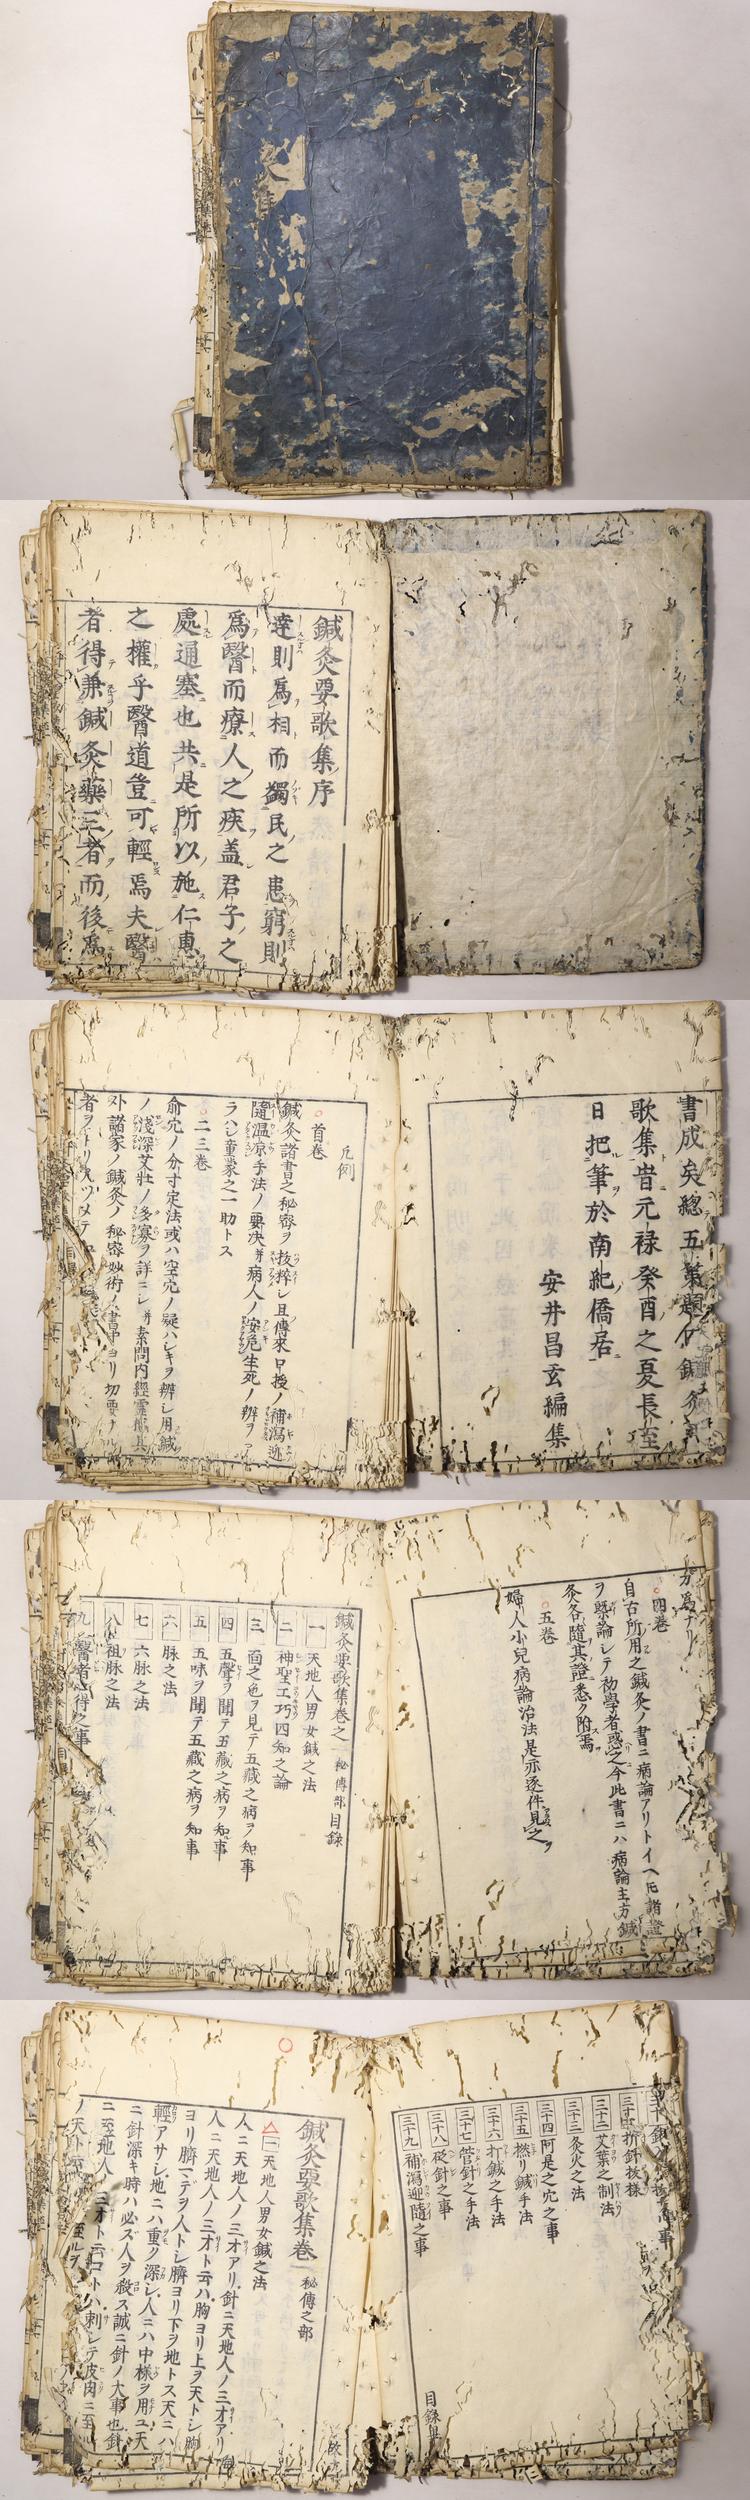 鍼灸要歌集序
達則爲相而獨民之患窮則
爲醫而療人之疾盖君子之
處通塞也共是所以施仁恵
之權乎醫道豈可輕焉夫醫
者得兼鍼灸藥三者而後爲
書成矣總五策題夕鍼灸
歌集旹元禄癸酉之夏長至
日把筆於南紀僑居
安井昌玄編集
凡例
○首巻
鍼灸諸書之秘密ヲ抜粹レ且傳來口授ノ補瀉迎
隨温凉手法ノ要决并病人ノ安危生死ノ辨ヲア
ラハレ童蒙之一助トス
○二三巻
兪穴ノ分寸定法或ハ空穴ノ疑ハレキヲ辨レ用鍼
ノ淺深艾壮ノ多寡ヲ詳ニレ并素問内經靈樞其
外諸家ノ鍼灸ノ秘密妙術ノ書中ヨリ切要ナル
者ヲトリアツメテ
方爲ナリ
○四巻
自古所用之鍼灸ノ書ニ病論アリトイヘ𪜈諸證
ヲ懸論レテ初學者惑之今此書ニハ病論主方鍼
灸各隨其證悉ク附焉
○五巻
婦人小兒病論治法是亦逐件見之
鍼灸要歌集巻之一 秘傳部 目録
一 天地人男女鍼之法
二 神聖工巧四知之論
三 面之色ヲ見テ五藏之病ヲ知事
四 五聲ヲ聞テ五藏之病ヲ知事
五 五味ヲ聞テ五藏之病ヲ知事
六 脉之法
七 六脉之法
八 祖脉之法
九 醫者心得之事
三十一 折針抜様
三十二 艾葉之制法
三十三 灸火之法
三十四 阿是之穴之事
三十五 撚リ鍼手法
三十六 打鍼之手法
三十七 管針之手法
三十八 砭針之事
三十九 補瀉迎隨之事
目録畢
鍼灸要歌集巻一 秘傳之部
一 天地人男女鍼之法
人ニ天地人ノ三才アリ針ニ天地人ノ三才アリ
人ニ天地人ノ三才ト云ハ胸ヨリ上ヲ天トシ胸
ヨリ臍マテヲ人トシ臍ヨリ下ヲ地トス天ニハ
輕アサレ地ニハ重ク深レ人ニハ中樣ヲ用ユ天
ニ針深キ時ハ必ズ人ヲ殺ス誠ニ針ノ大事也針
ニ天地人ノ三才ト云コトハ刺レテ皮肉ニ至
ノ天ト云